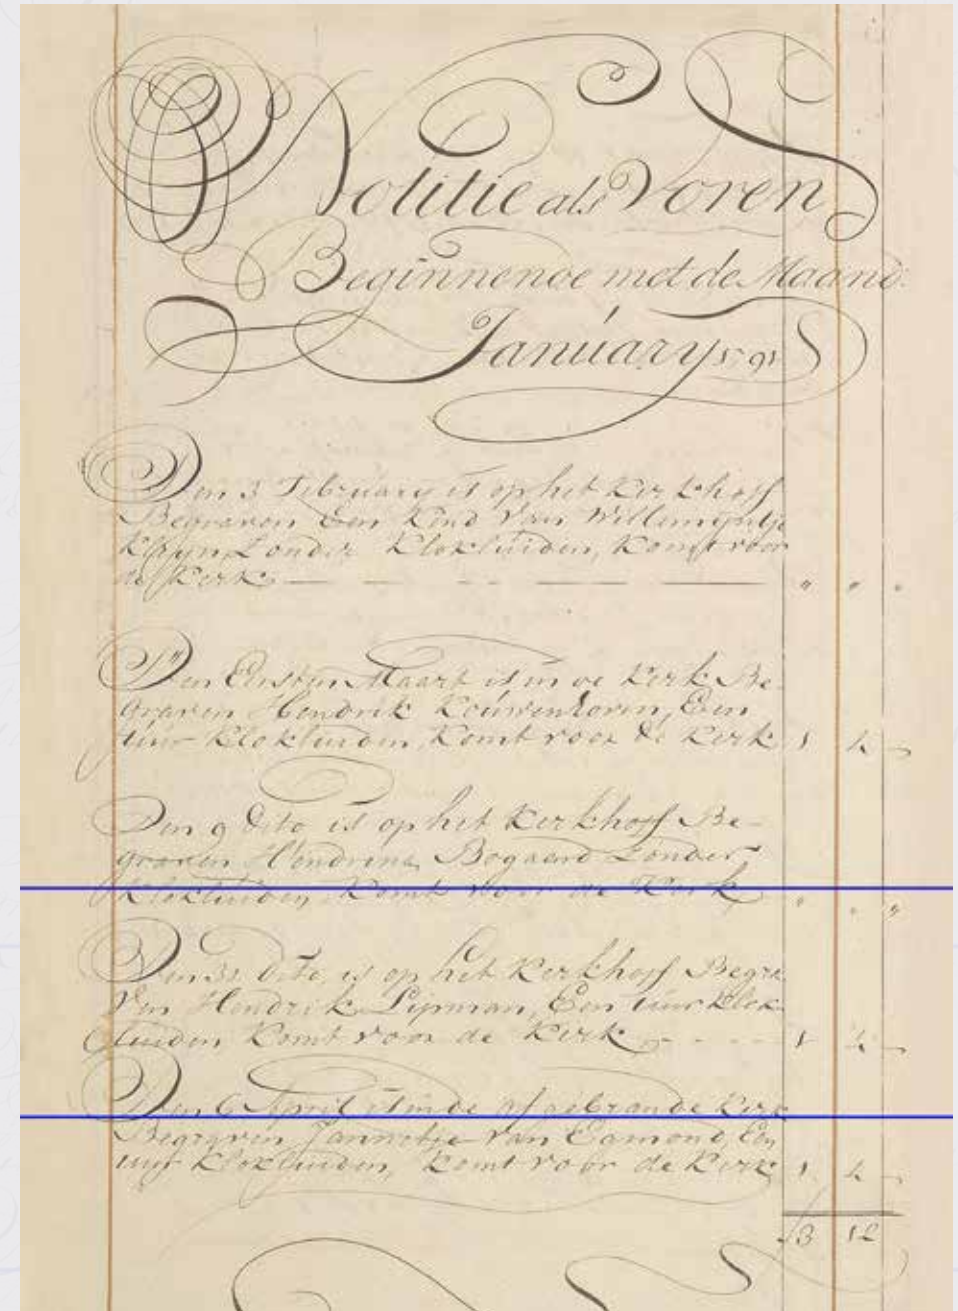 Notitie als Voren
Beginnende met de Maand
January 1791
Den 3 February is op het Kerkhoff
Begraven Een Kind van Willemyntje
Kleyn Zonder Klokluiden, Komt voor
de Kerk — — — — — " " "
Den Eersten Maart is in de Kerk Be-
graven Hendrik Kouwenhoven, Een
uur Klokluiden, Komt voor de Kerk 1 4 -
Den 9 dito is op het Kerkhoff Be-
graven Hendrina Bogaerd Zonder
Klokluiden Komt voor de Kerk " " "
Den 31 dito, is op het Kerkhoff Begra
ven Hendrik Lipman, Een uur Klok
luiden Komt voor de Kerk - - - - 1 4 -
Den 6 April is in de afgebrande Kerk
Begraven Jannetje van Eamond, Een
uur Klokluiden, Komt voor de Kerk 1 4 -
ƒ3 12